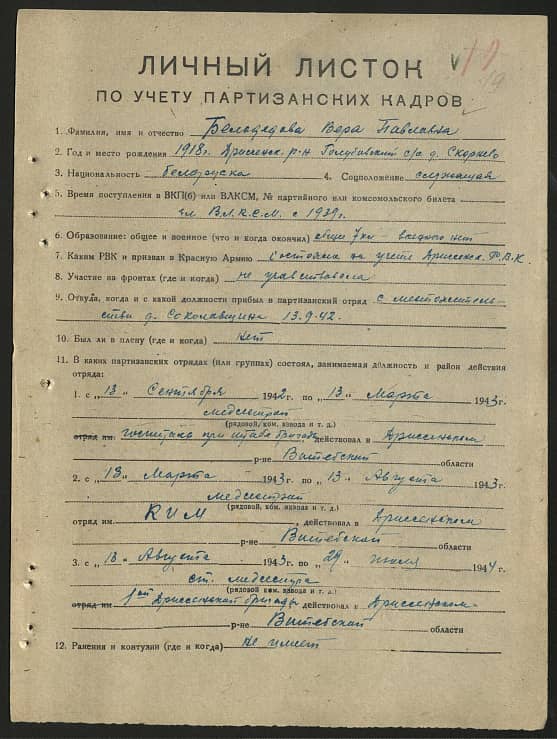 19
ЛИЧНЫЙ ЛИСТОК
ПО УЧЕТУ ПАРТИЗАНСКИХ КАДРОВ
1. Фамилия, имя и отчество Белодедова Вера Павловна
2. Год и место рождения 1918г. Дрисенск. р-н Голубовский с/с д. Скорнево
3. Национальность белоруска 4. Соцположение служащая
5. Время поступления в ВКП(б) или ВЛКСМ, № партийного или комсомольского билета
чл В.Л.К.С.М. с 1939г.
6. Образование: общее и военное (что и когда окончил) общее 7кл – военного нет
7. Каким РВК и призван в Красную Армию состояла на учете Дриссенск. Р.В.К.
8. Участие на фронтах (где и когда) не учавствовала
9. Откуда, когда и с какой должности прибыл в партизанский отряд с местожитель-
ства д. Соколовщина 13.9.42.
10. Был ли в плену (где и когда) нет
11. В каких партизанских отрядах (или группах) состоял, занимаемая должность и район действия
отряда:
1. с „13„ Сентября 1942г. по „13„ Марта 1943г.
медсестрой
(рядовой, ком. взвода и т. д.)
отряд им. госпиталь при штабе бригады действовал в Дриссенском
р-не Витебской области
2. с „13„ Марта 1943г. по „13„ Августа 1943г.
медсестрой
(рядовой, ком. взвода и т. д.)
отряд им. КИМ, действовал в Дриссенском
р-не Витебской области
3. с „13„ Августа 1943г. по „29„ июля 1944г.
ст. медсестра
(рядовой ком. взвода и т. д.)
отряд им. 1ой Дриссенской бригады действовал в Дриссенском
р-не Витебской области
12. Ранения и контузии (где и когда) не имеет